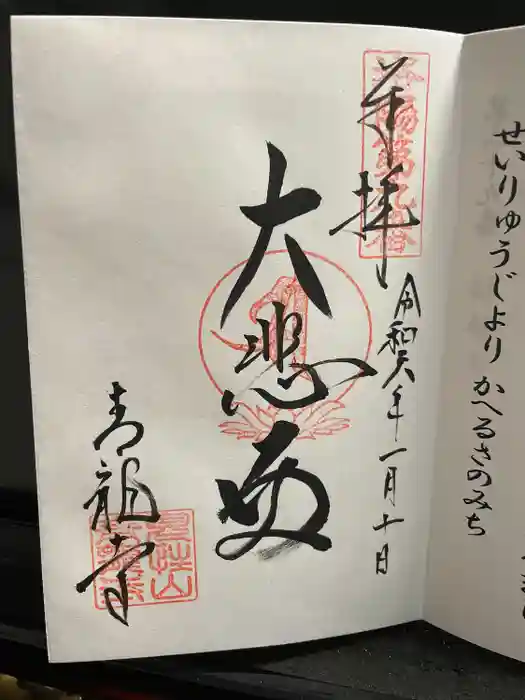 せいりゅうじより かへるさのみち
奉拝
洛陽第九番
令和六年一月十日
大悲殿
青龍寺